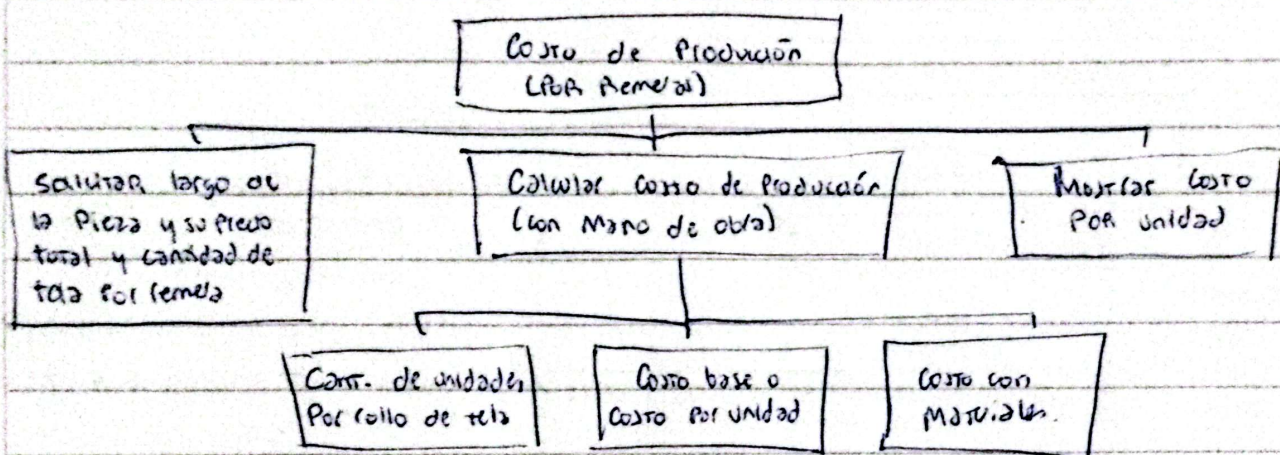 Costo de Producción
(POR Remeras)
Solicitar largo de
la Pieza y su precio
total y cantidad de
tela por remera
Calcular costo de Producción
(con Mano de obra)
Mostrar costo
POR unidad
Cant. de unidades
Por rollo de tela
Costo base o
costo por unidad
Costo con
Materiales.